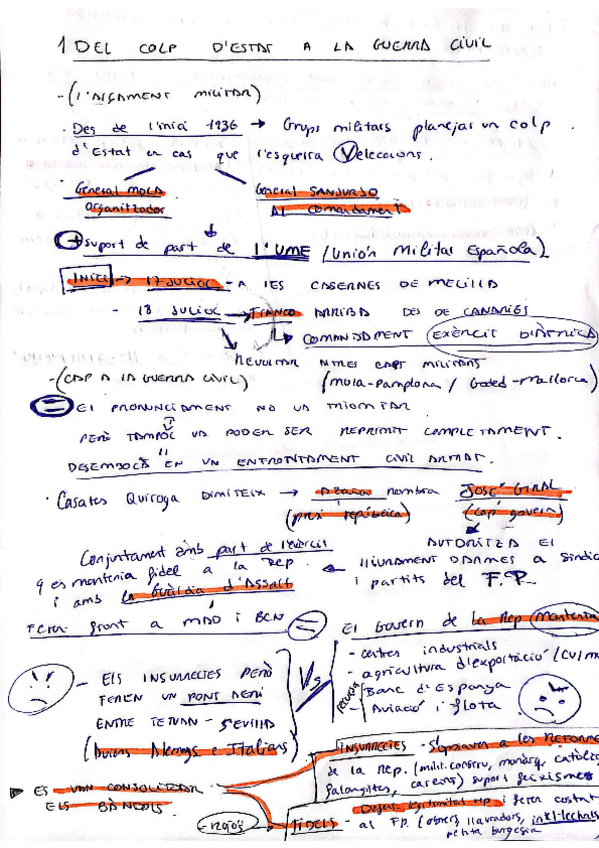 1 DEL COLP D'ESTAT A LA GUERRA CIVIL
- (L'ALÇAMENT MILITAR)
· Des de l'inici 1936 → Grups militars planejar un colp
d'Estat en cas que l'esquerra V eleccions.
· General MOLA
organitzador
General SANJURJO
Al comandament
+ suport de part de l'UME (Unión Militar Española)
INICI → 17 JULIOL - A LES CASERNES DE MELILLA
- 18 JULIOL → FRANCO ARRIBA DES DE CANÀRIES
COMANDAMENT EXÈRCIT D'ÀFRICA
REVOLTAR ALTRES CAPS MILITARS
(Mola-Pamplona / Goded-Mallorca)
- (CAP A LA GUERRA CIVIL)
= El PRONUNCIAMENT NO VA TRIOMFAR
PERÒ TAMPOC VA PODER SER REPRIMIT COMPLETAMENT.
DESEMBOCÀ EN UN ENFRONTAMENT CIVIL ARMAT.
· Casares Quiroga DIMITEIX → Azaña nombra JOSÉ GIRAL
(presi república) (cap govern)
AUTORITZA El
lliurament D'ARMES a sindica
i partits del F.P.
Conjuntament amb part de l'exèrcit
q es mantenia fidel a la Rep
i amb la Guàrdia d'Assalt
FEREN front a MAD i BCN =
El Govern de la Rep Mantenia
- centres industrials
- agricultura d'exportació (CV/M
recursos
- Banc d'Espanya
- Aviació i flota
- Els INSURRECTES PERÒ
FEREN UN PONT AERI
ENTRE TETUAN - SEVILLA
(Avions Alemanys e Italians)
Vs
INSURRECTES - S'oposaven a les REFORME
de la Rep. (milit. conserv, monàrq, catòlics
falangistes, carlins) suport feixismes
▸ ES VAN CONSOLIDAR
ELS BÀNDOLS
FIDELS - Defen. legitimitat rep i feren costat
al FP. (obrers, llauradors, intel·lectuals,
petita burgesia